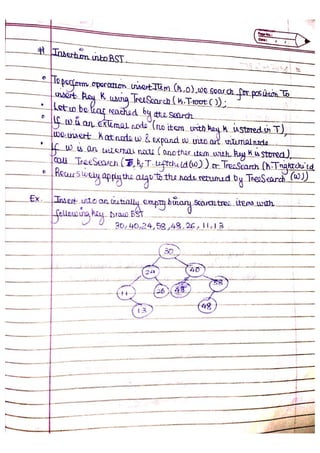 # Insertion into BST.
To perform operation insertItem (k,o), we search for position to
insert key k using TreeSearch (k, T.root ( ));
Let w be leaf reached by the search
If w is an external node (no item with key K is stored in T),
we insert K at node w & expand w into an internal node
If w is an internal node (another item with key K is stored),
call TreeSearch (k, T. leftchild(w)) or TreeSearch (k. T rightchild
(w))
Recursively apply the algo to the node returned by TreeSearch
Ex. Insert into an initially empty binary search tree items with
following key. Draw BST
30, 40, 24, 58, 48, 26, 11, 13
30
24 40
11 26 48 58
13 48